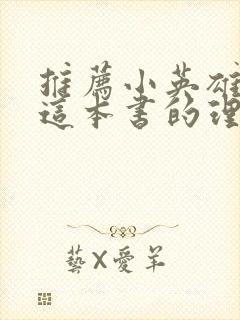 推薦小英雄
這本書的理
藝X愛羊